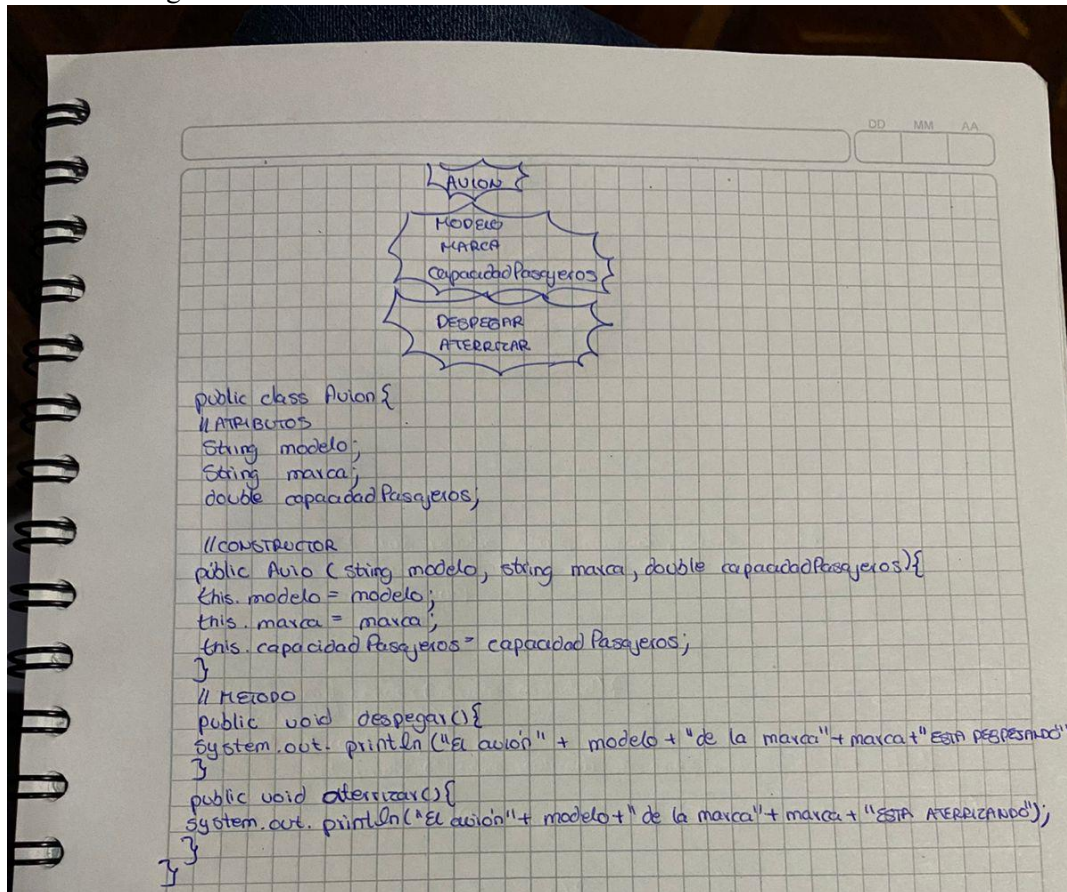 DD MM AA
AVION
MODELO
MARCA
capacidadPasajeros
DESPEGAR
ATERRIZAR
public class Avion{
//ATRIBUTOS
String modelo;
String marca;
double capacidadPasajeros;
//CONSTRUCTOR
public Avio (string modelo, string marca, double capacidadPasajeros){
this.modelo = modelo;
this.marca = marca;
this.capacidadPasajeros = capacidadPasajeros;
}
// METODO
public void despegar(){
system.out.println("El avión" + modelo + "de la marca" + marca + "ESTA DESPEGANDO"
}
public void aterrizar(){
system.out.println("El avión" + modelo + "de la marca" + marca + "ESTA ATERRIZANDO");
}
}